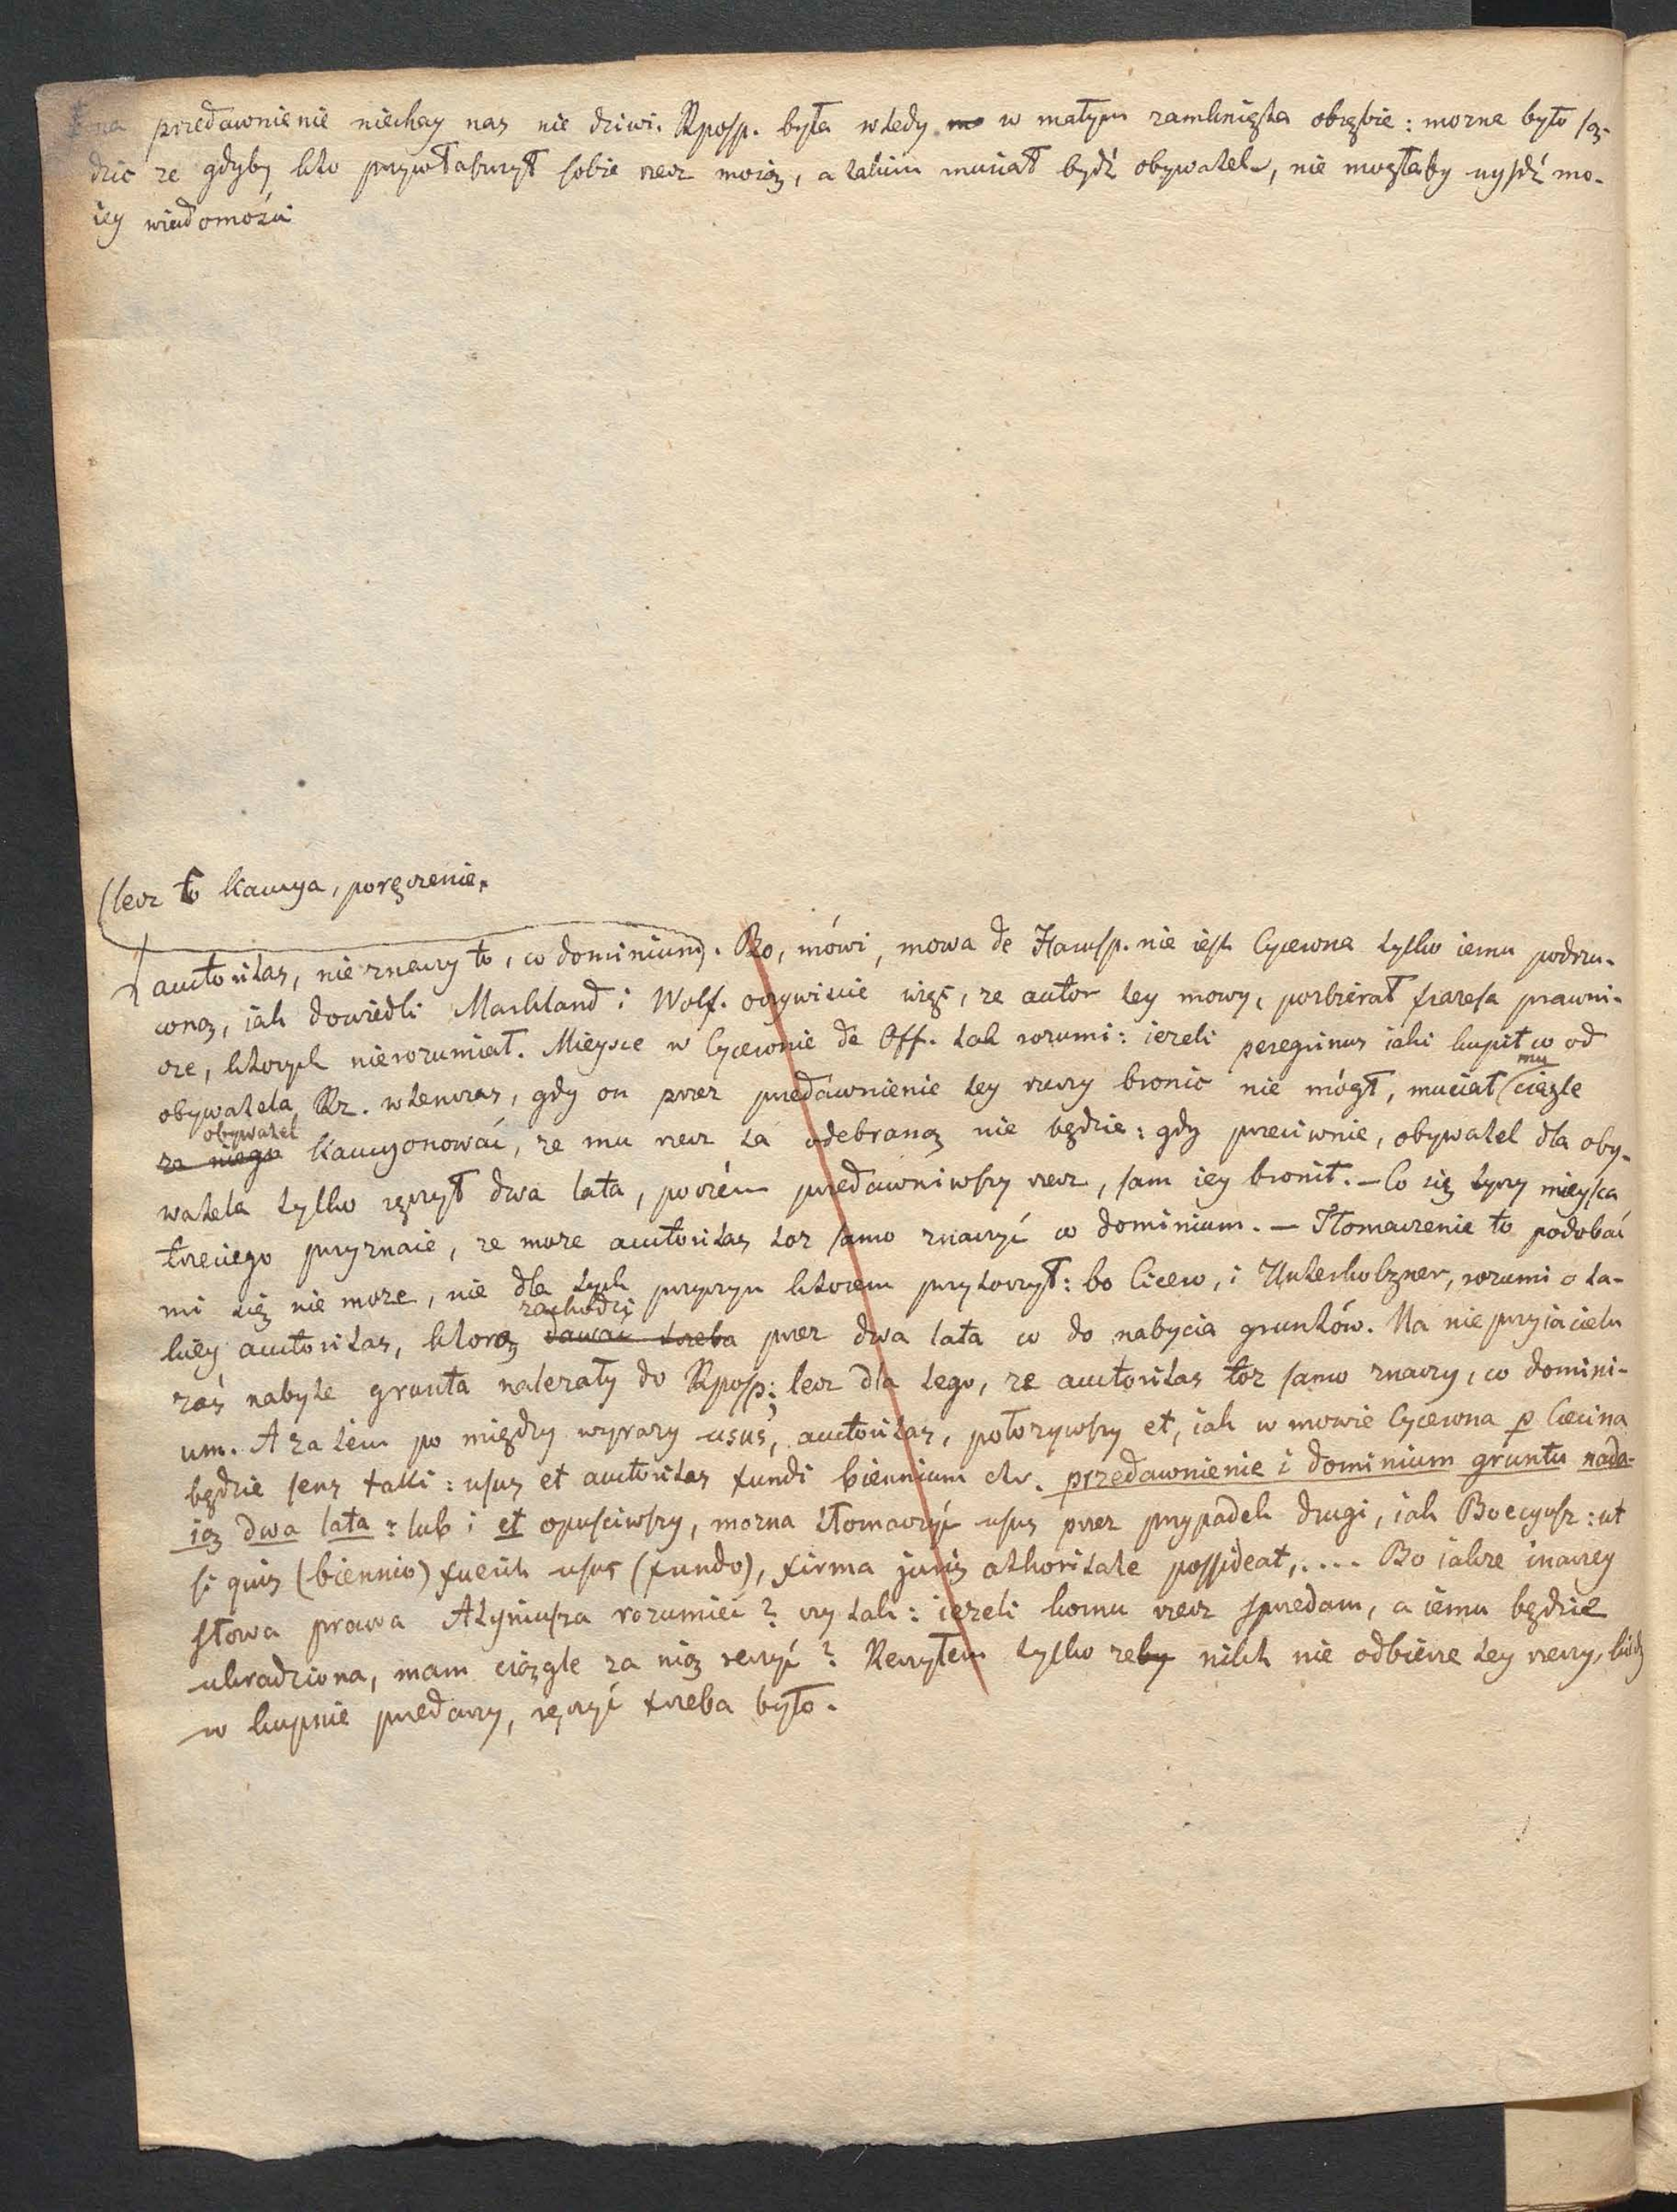 na przedawnienie niechay nas nie dziwi. Rposp. była wtedy w małym zamknięta obrębie: mozna było są-
dzic ze gdyby kto przywłaszczył sobie rzecz moią, a takim musiał bydź obywatel, nie mogłaby uyśdź mo-
iey wiadomości
(lecz to kaucya, poręczenie.
auctoritas, nie znaczy to, co dominium). Bo, mówi, mowa de Harusp. nie iest Cycerona tylko iemu podrzu-
coną, iak dowiedli Markland i Wolf. oczywiscie więc, ze autor tey mowy, pozbierał frazesa prawni-
cze, ktorych nierozumiał. Mieysce w Cyceronie de Off. tak rozumi: iezeli peregrinus iaki kupił co od
obywatela Rz. wtenczas, gdy on przez przedawnienie tey rzeczy bronic nie mógł, musiał mu ciągle
za niego obywatel kaucyonować, ze mu rzecz ta odebraną nie będzie: gdy przeciwnie, obywatel dla oby-
watela tylko ręczył dwa lata, poczém przedawniwszy rzecz, sam iey bronił. — Co się tyczy mieysca
trzeciego przyznaie, ze moze auctoritas toz samo znaczyć co dominium. — Tłomaczenie to podobać
mi się nie moze, nie dla tych przyczyn ktorem przytoczył: bo Cicero, i Unterholzner, rozumi o ta-
kiey auctoritas, ktorą dawać trzeba zachodzi przez dwa lata co do nabycia gruntów. Na nieprzyiacielu
zaś nabyte grunta nalezały do Rposp; lecz dla tego, ze auctoritas toz samo znaczy, co domini-
um. A zatem po między wyrazy usus, auctoritas, połozywszy et, iak w mowie Cycerona p Cæcina
będzie sens taki: usus et auctoritas fundi biennium etc. przedawnienie i dominium gruntu nada-
ią dwa lata: lub i et opuściwszy, mozna tłomaczyć usus przez przypadek drugi, iak Boecyusz: ut
si quis (biennio) fuerit usus (fundo), firma juris athoritate possideat,.... Bo iakze inaczey
słowa prawa Atyniusza rozumieć? czy tak: iezeli komu rzecz sprzedam, a iemu będzie
ukradziona, mam ciągle za nią reczyć? Reczyłem tylko zeby nikt nie odbierze tey rzeczy,
w kupnie przedazy, ręczyć trzeba było.